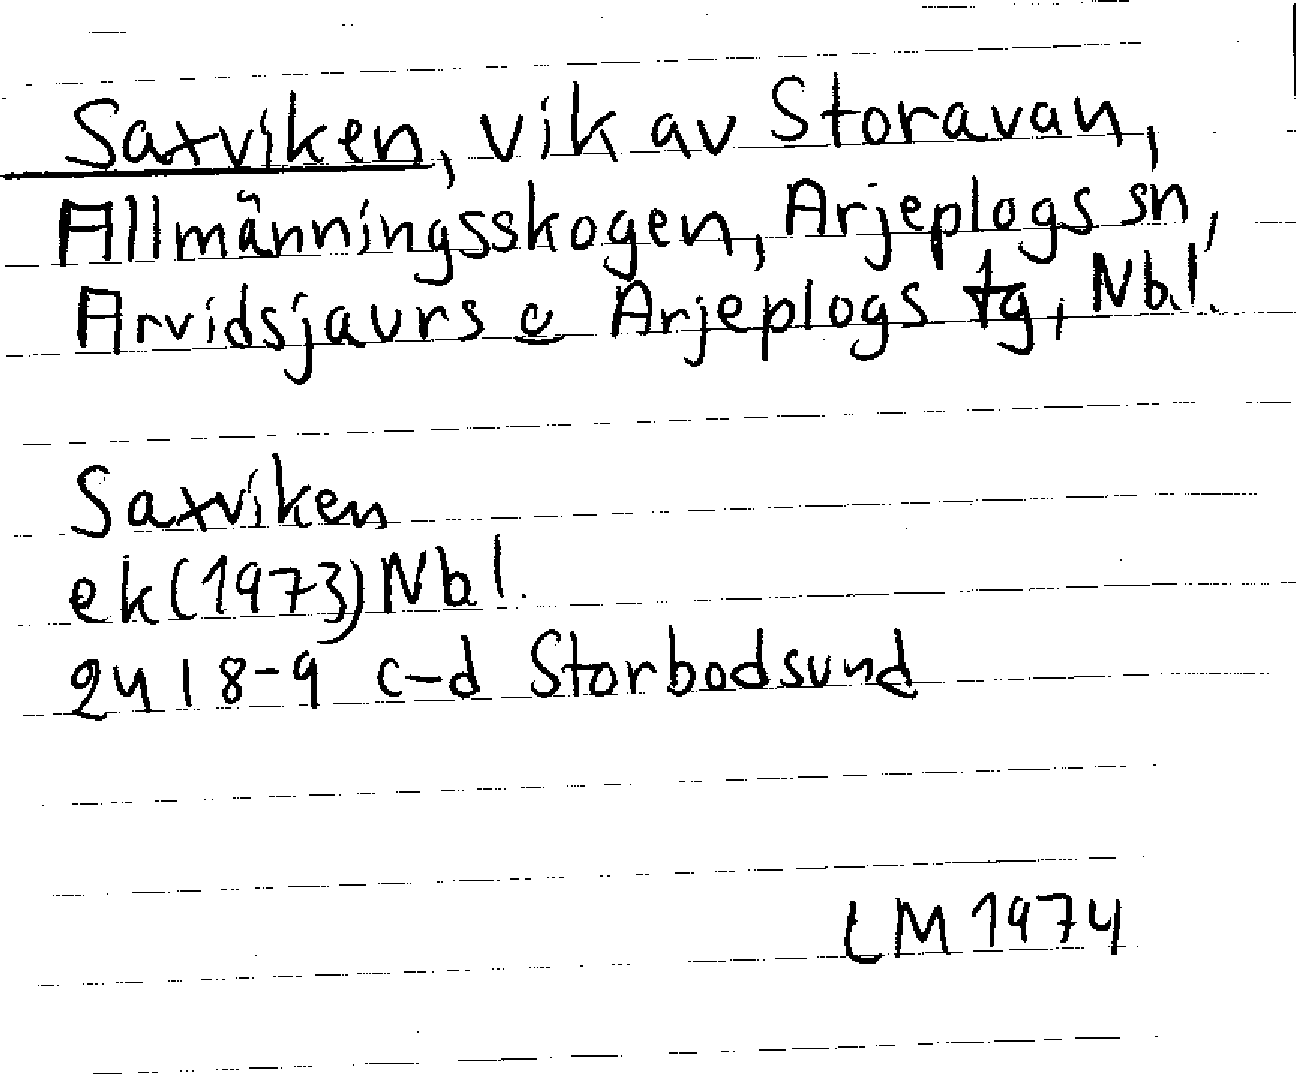 Saxviken, vik av Storavan,
Allmänningsskogen, Arjeplogs sn,
Arvidsjaurs o Arjeplogs tg, Nb.l.
Saxviken
ek(1973)Nb.l.
24 I 8-9 c-d Storbodsund
LM 1974